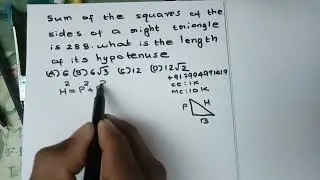 Sum of the squares of the
sides of a right triangle
is 288. what is the length
of its hypotenuse
(A) 6 (B) 6√3 (C) 12 (D) 12√2
+919994991619
CC: 1K
MC: 10K
H² = P² +
P H
B